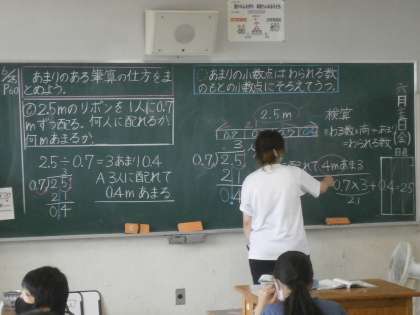 P60
あまりのある筆算の仕方をま
とめよう。
②2.5mのリボンを1人に0.7
mずつ配る。何人に配れるか。
何mあまるか。
2.5÷0.7=3あまり0.4
3
0.7)2.5
2 1
0.4
A 3人に配れて
0.4mあまる
あまりの小数点はわられる数
のもとの小数点にそろえてうつ。
2.5m
0.7
3
0.7)2.5
2 1
0.4
配れて
検算
わる数×商+あまり
=わられる数
0.7×3+0.4=2.5
2.1
六月三日(金)
日直